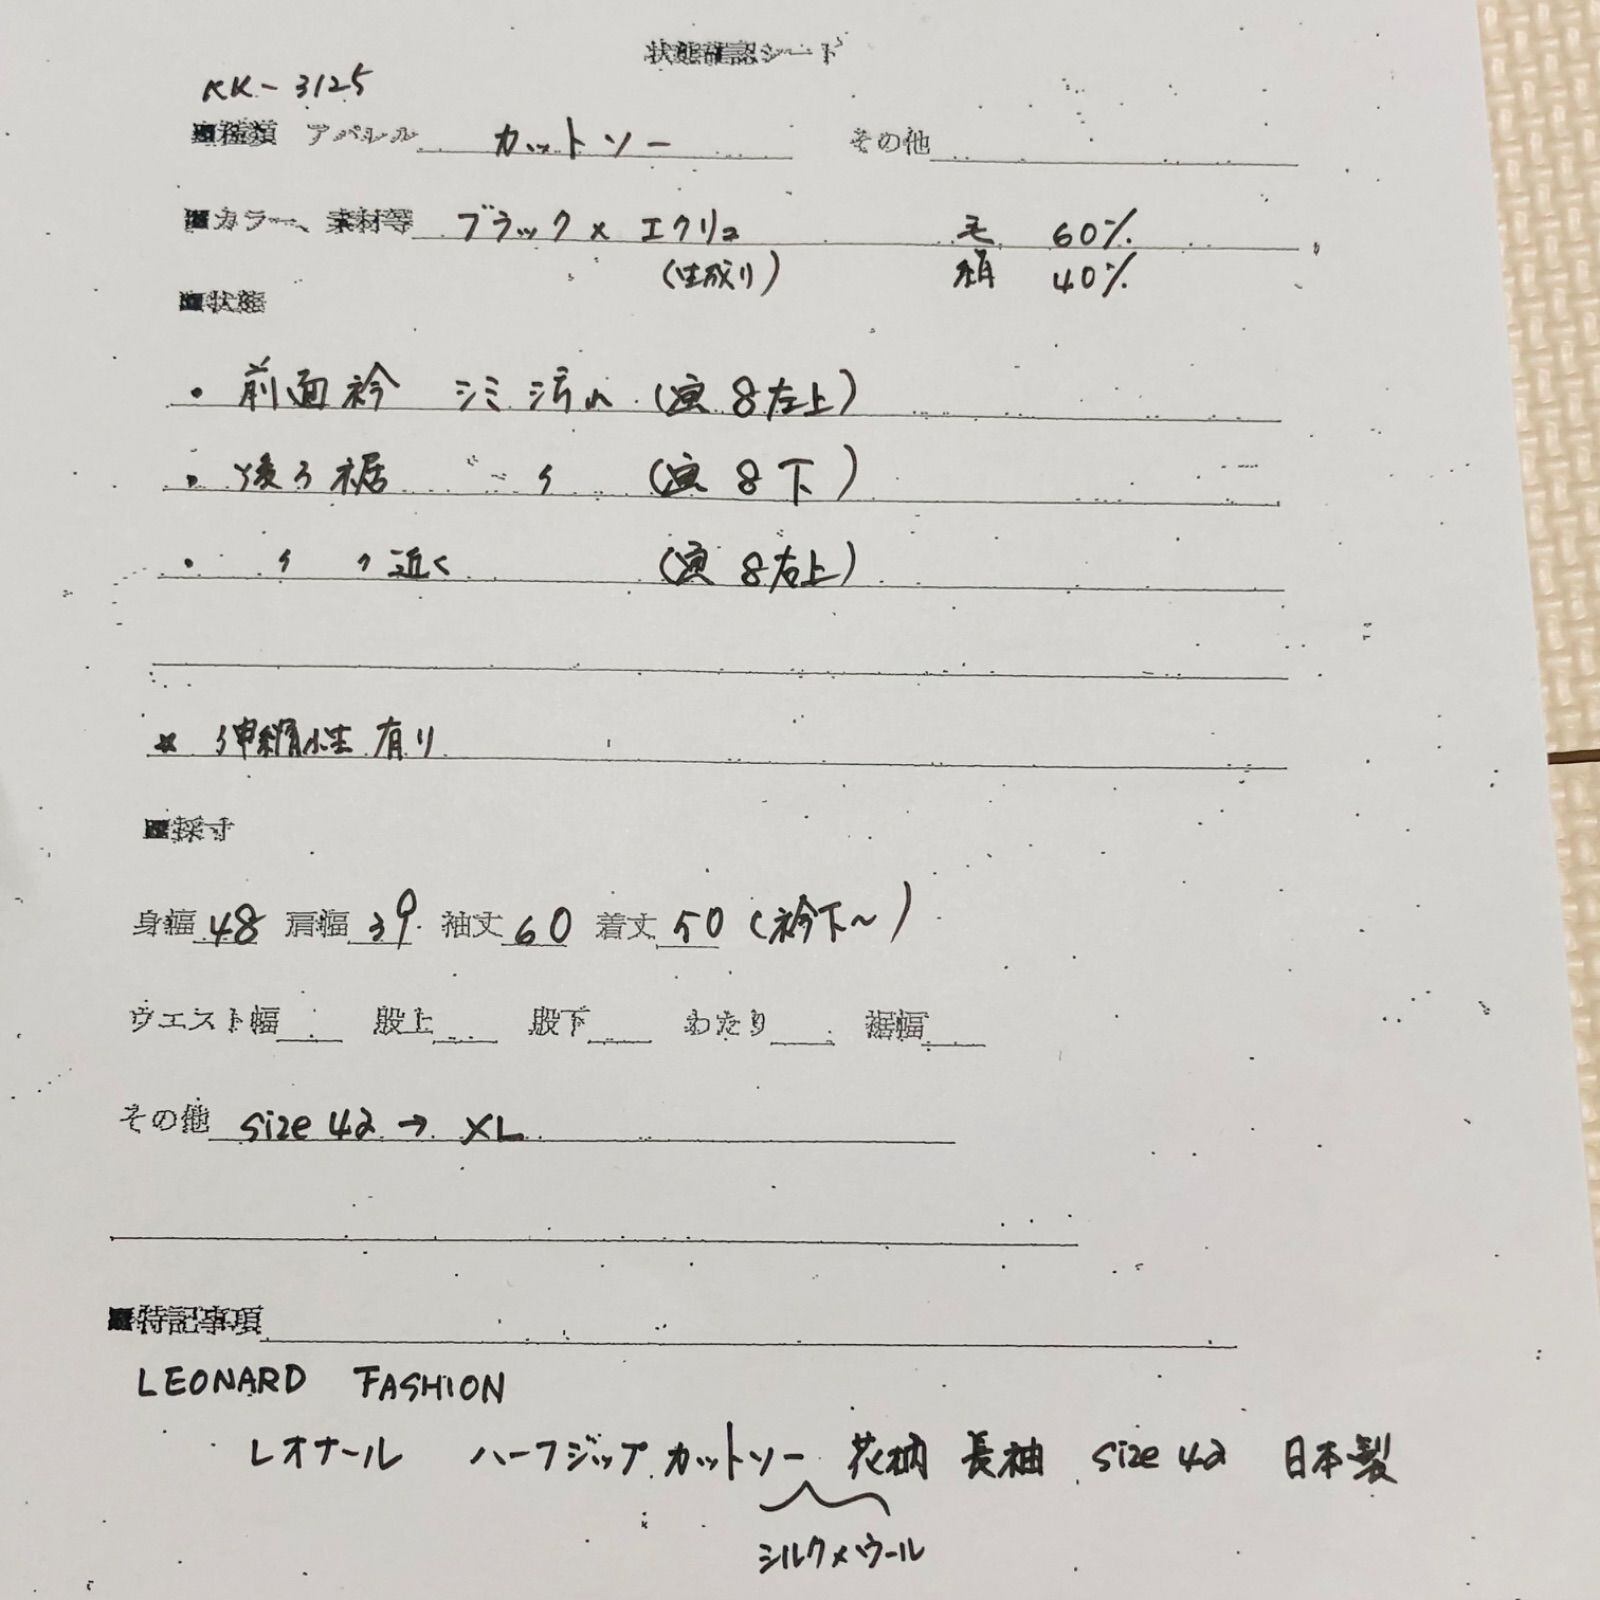 状態確認シート
KK-3125
■種類 アパレル カットソー その他
■カラー、素材等 ブラック×エクリュ 毛 60%
(生成り) 絹 40%
■状態
・前面衿 シミ汚れ (写 8左上)
・後ろ裾 〃 〃 (写 8下)
・〃 〃近く (写 8右上)
* 伸縮性有り
■採寸
身幅 48 肩幅 39 袖丈 60 着丈 50 (衿下~)
ウエスト幅 股上 股下 わたり 裾幅
その他 size 42 → XL
■特記事項
LEONARD FASHION
レオナール ハーフジップカットソー 花柄 長袖 size 42 日本製
シルク×ウール